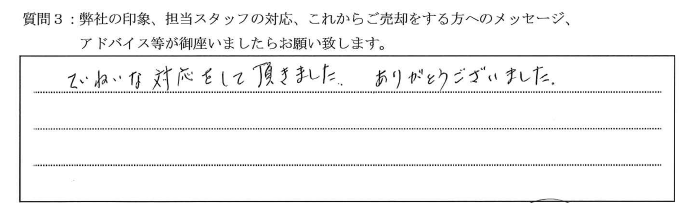 質問３：弊社の印象、担当スタッフの対応、これからご売却をする方へのメッセージ、
アドバイス等が御座いましたらお願い致します。
ていねいな対応をして頂きました。 ありがとうございました。